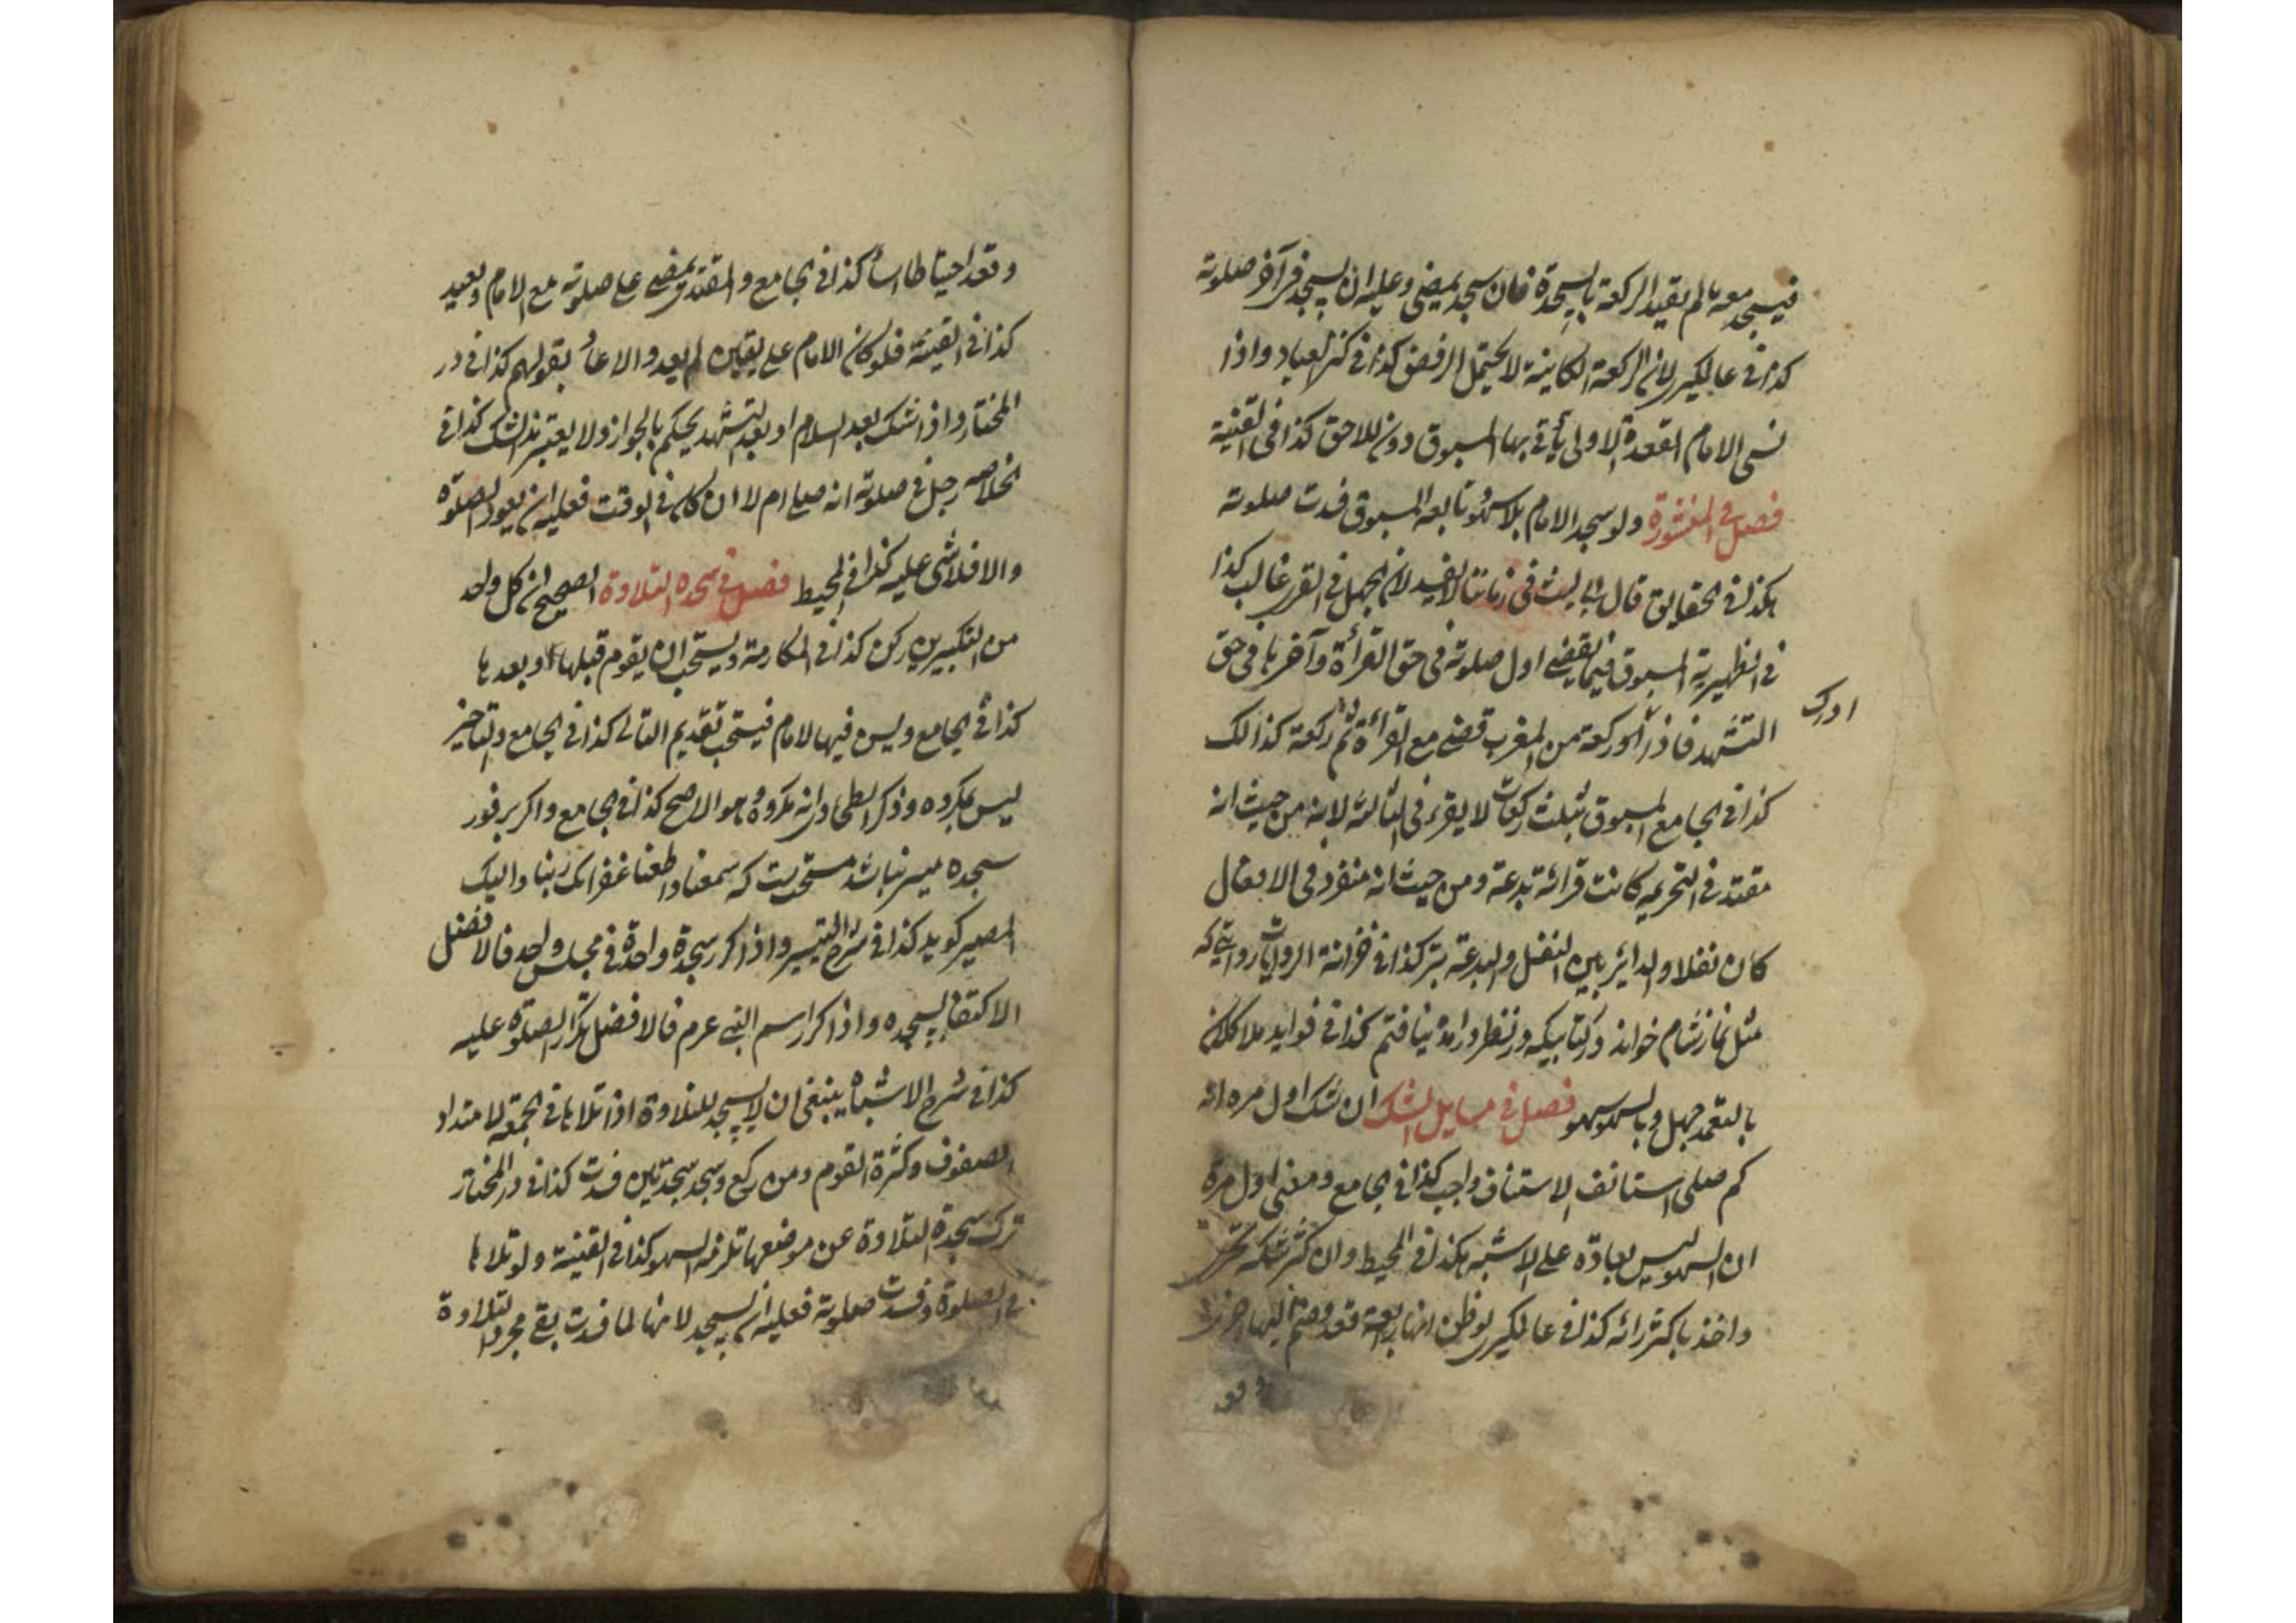 فيسجد معه ما لم يقيد الركعة بالسجدة فان سجد يمضي وعليه ان يسجد في آخر صلوته
كذا في عالمكيري لان الركعة الكاينة لا يحتمل الرفض كذا في كنز العباد واذا
نسي الامام القعدة الاولى يأتي بها المسبوق دون اللاحق كذا في القنية
فصل في المنثورة ولو سجد الامام بلا سهو تابعه المسبوق فسدت صلوته
هكذا في الحقايق قال ابو ليث في زماننا لا يفسد لان الجهل في القرى غالب كذا
في الظهيرية المسبوق فيما يقضي اول صلوته في حق القرأة وآخرها في حق
ادرك
التشهد فاذا ركعة من المغرب قضى مع القرأة ثم ركعة كذالك
كذا في الجامع المسبوق بثلث ركعات لا يقرء في الثالثة لانه من حيث انه
مقتد في التحريمه كانت قرائة بدعة ومن حيث انه منفرد في الافعال
كان نفلا والداير بين النفل والبدعة يترك كذا في خزانة الروايات روايتي كه
مثل نماز شام خواند در كتابيكه در نظر در آمد نيافتم كذا في فوايد ملا
بالتعمد جهل وبالسهو سهو فصل في مسايل الشك ان شك اول مره انه
كم صلى استانف الاستناف واجب كذا في الجامع ومعنى اول مرة
ان السهو ليس بعادة على الاشبه هكذا في المحيط وان كثر شكه تحرى
واخذ باكثر رائه كذا في عالمكيري لو ظن انها رابعة قعد وضم اليها اخرى
وقعد
وقعد احتياطا كذا في الجامع والمقتدي يمضي على صلوته مع الامام ويعيد
كذا في القنية فلو كان الامام على يقين لم يعد والا عاد بقولهم كذا في در
المختار واذا شك بعد السلام او بعد التشهد يحكم بالجواز ولا يعتبر الشك كذا في
الخلاصه رجل في صلوته انه صلى ام لا ان كان في الوقت فعليه ان يعود الصلوة
والا فلا شي عليه كذا في المحيط فصل في سجده التلاوة الصحيح ان كل واحد
من التكبيرين ركن كذا في المكارمة ويستحب ان يقوم قبلها او بعدها
كذا في الجامع وليس فيها الامام فيستحب تقديم التالي كذا في الجامع والتاخير
ليس بمكروه وذكر الطحاوي انه مكروه وهو الاصح كذا في الجامع واكر بر فور
سجده ميسر نباشد مستحبست كه سمعنا واطعنا غفرانك ربنا واليك
المصير كويد كذا في شرح التيسير واذا كرر سجدة واحدة في مجلس واحد فالافضل
الاكتفا بسجده واذا كرر اسم النبي عرم فالافضل تكرار الصلوة عليه
كذا في شرح الاشباه ينبغي ان لا يسجد للتلاوة اذا تلاها في الجمعة لامتداد
الصفوف وكثرة القوم ومن ركع وسجد سجدتين فسدت كذا في در المختار
ترك سجدة التلاوة عن موضعها تلزمه السهو كذا في القنية ولو تلاها
في الصلوة وفسدت صلوته فعليه ان يسجد لانها لما فسدت بقى مجرد التلاوة